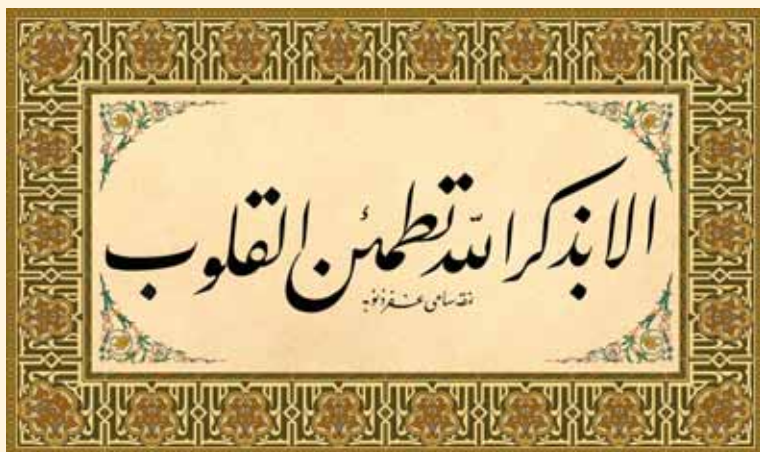 الا بذكر الله تطمئن القلوب
نمقه سامي غفر ذنوبه